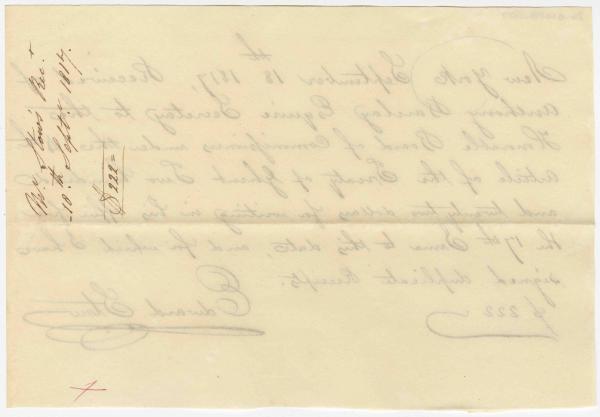 Rec.t
10.th Sept.r 1817.
$222=
New York September 18th 1817, Received of
Anthony Barclay Esquire Secretary to the
Honorable Board of Commissioners under the
article of the Treaty of Ghent Two
and twenty two dollars for writing in his
the 17th June to this date, and for which I have
signed duplicate Receipts.
$ 222 Edward